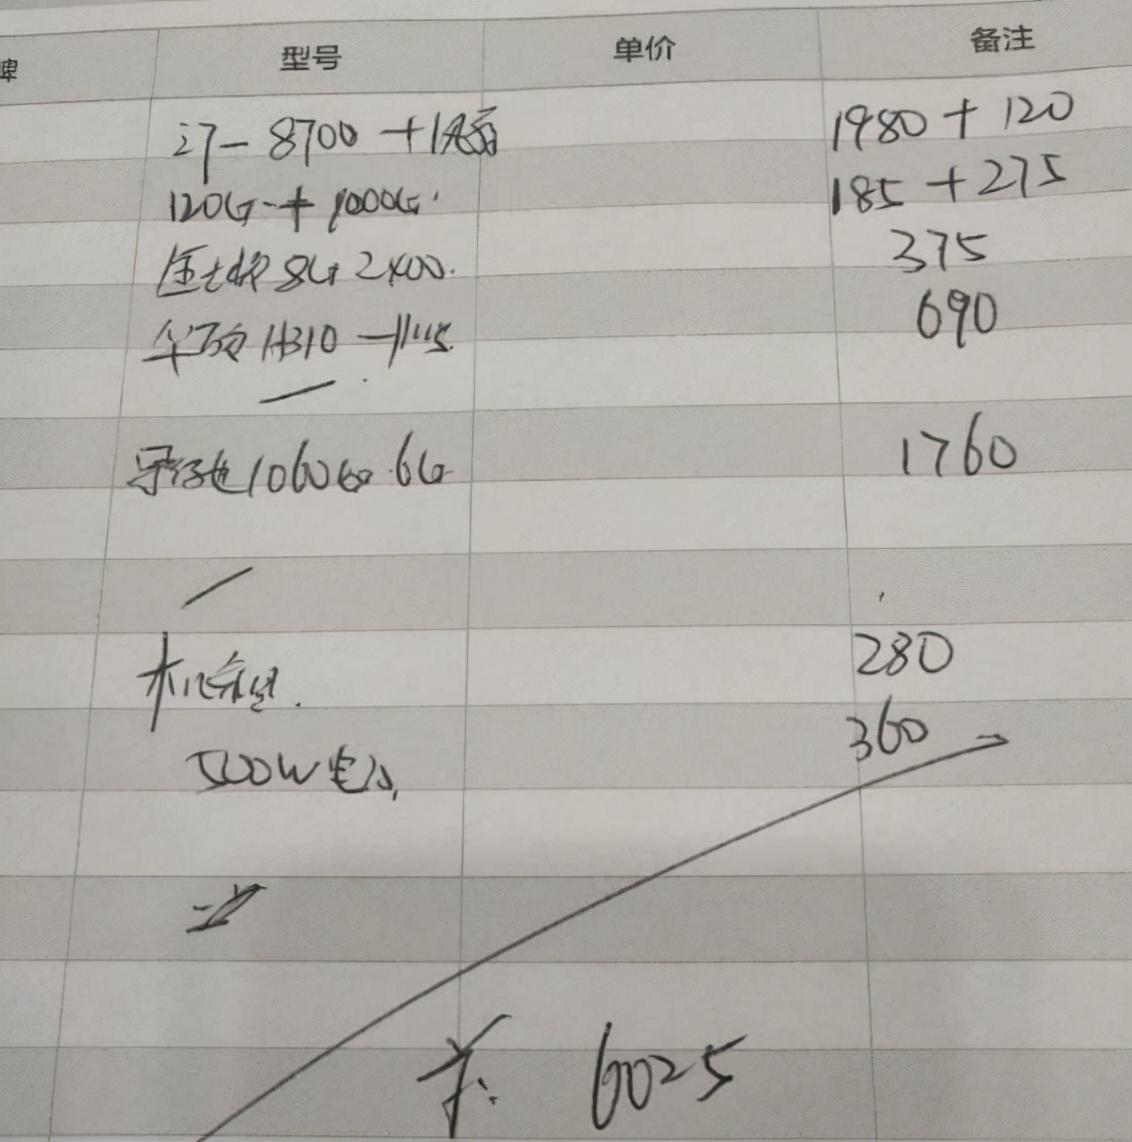 型号 单价 备注
i7-8700 + 1980 + 120
120G + 1000G 185 + 275
金士顿 8G 2400 375
华硕 H310 690
1060 6G 1760
机箱 280
500W 电源 360
6025